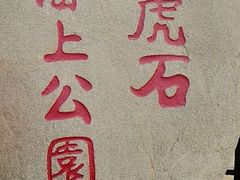 虎石
海上公園